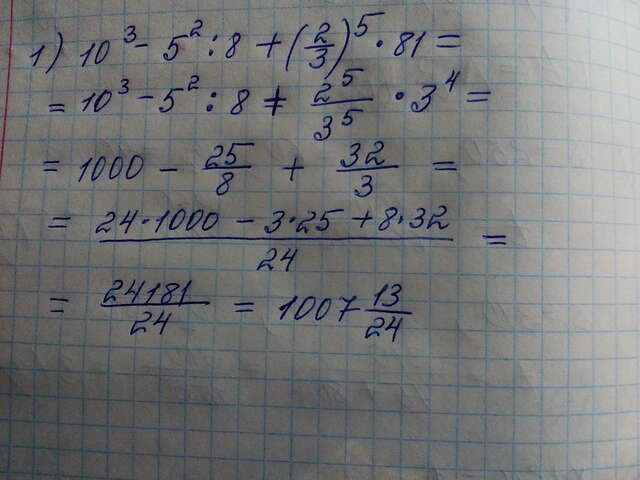 1) 10³ - 5² : 8 + (2/3)⁵ · 81 =
= 10³ - 5² : 8 + 2⁵/3⁵ · 3⁴ =
= 1000 - 25/8 + 32/3 =
= 24·1000 - 3·25 + 8·32 / 24 =
= 24181/24 = 1007 13/24